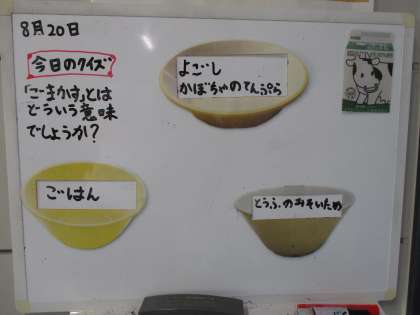 8月20日
今日のクイズ
「ごまかす」とは
どういう意味
でしょうか？
よごし
かぼちゃのてんぷら
ごはん
とうふのみそいため